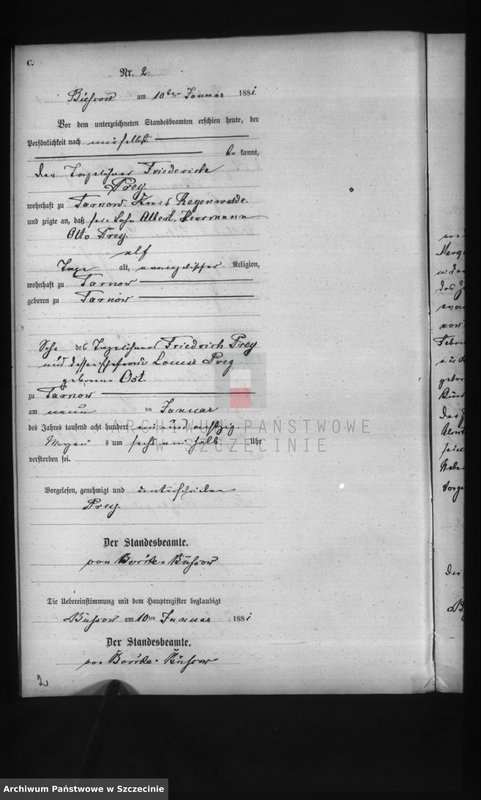 C.
Nr. 2.
am 10ten Januar 1881
Vor dem unterzeichneten Standesbeamten erschien heute, der
Persönlichkeit nach
be kannt,
der Tagelöhner Friederich
Prey
wohnhaft zu Tarnow Kreis Regenwalde
und zeigte an, daß sein Sohn Albert Herrmann
Otto Prey
elf
Tage alt, evangelischer Religion,
wohnhaft zu Tarnow
geboren zu Tarnow
Sohn des Tagelöhners Friedrich Prey
und dessen Ehefrau Louise Prey
geborene Ost
zu Tarnow
am neun ten Januar
des Jahres tausend acht hundert ein und achtzig
Morgen s um sechs ein halb Uhr
verstorben sei.
Vorgelesen, genehmigt und unterschrieben
Prey
Der Standesbeamte.
von Borcke
Die Uebereinstimmung mit dem Hauptregister beglaubigt
am 10ten Januar 1881
Der Standesbeamte.
von Borcke
2
ARCHIWUM PAŃSTWOWE
W SZCZECINIE
Archiwum Państwowe w Szczecinie